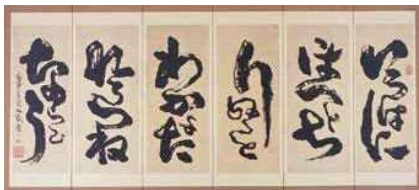 いろはに
ほへとち
りぬるを
わかよた
れそつね
ならむう